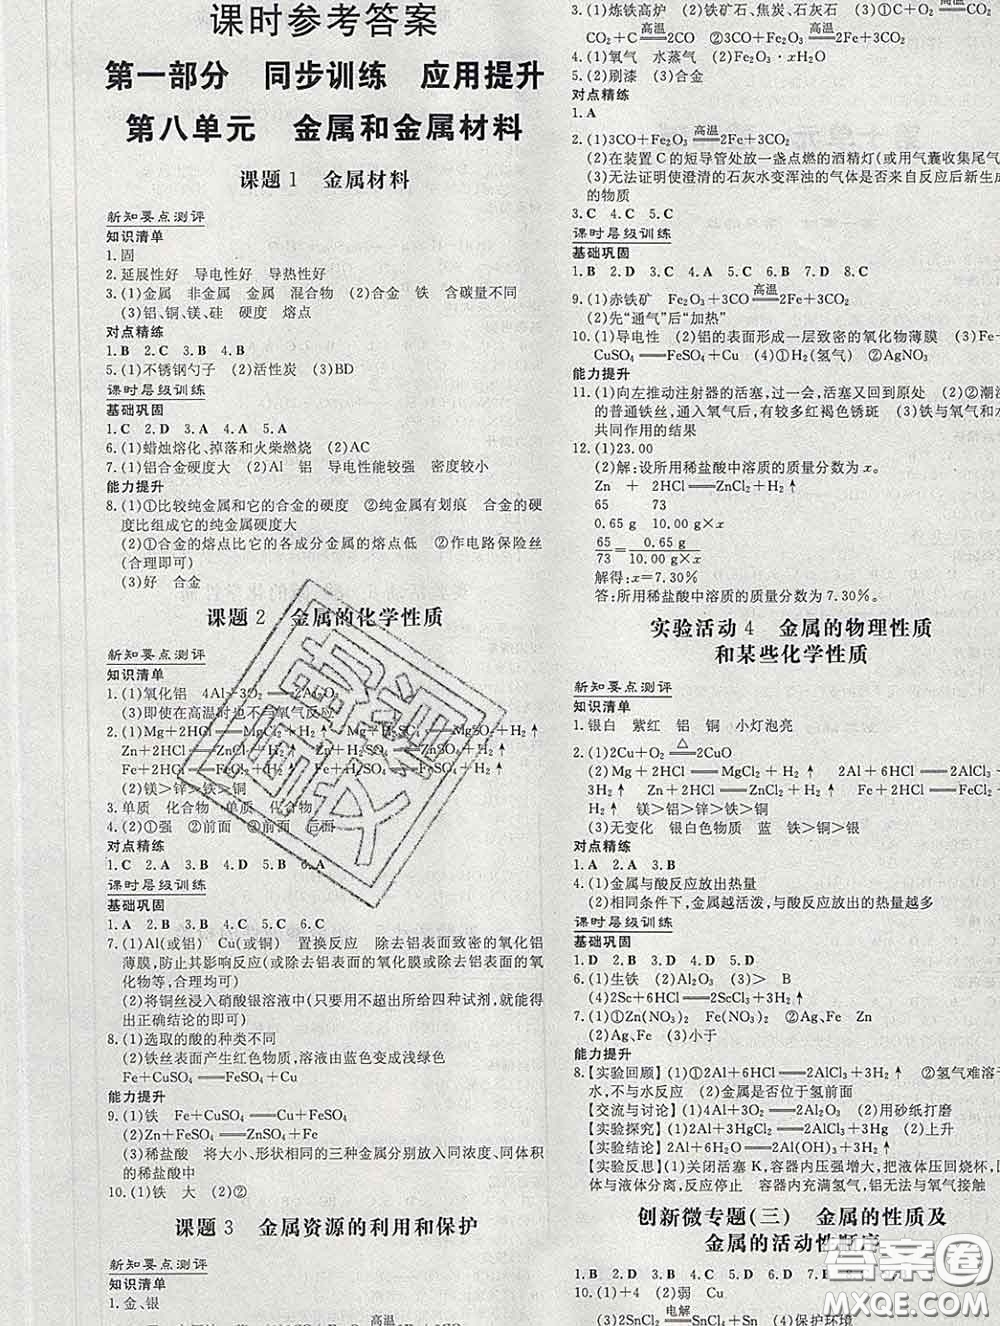 课时参考答案
第一部分 同步训练 应用提升
第八单元 金属和金属材料
课题1 金属材料
新知要点测评
知识清单
1.固
2.延展性好 导电性好 导热性好
3.(1)金属 非金属 金属 混合物 (2)合金 铁 含碳量不同
(3)铝、铜、镁、硅 硬度 熔点
对点精练
1.B 2.C 3.B 4.B
5.(1)不锈钢勺子 (2)活性炭 (3)BD
课时层级训练
基础巩固
1.C 2.D 3.A 4.D 5.A
6.(1)蜡烛熔化、掉落和火柴燃烧 (2)AC
7.(1)铝合金硬度大 (2)Al 铝 导电性能较强 密度较小
能力提升
8.(1)①比较纯金属和它的合金的硬度 ②纯金属有划痕 合金的硬
度比组成它的纯金属硬度大
(2)①合金的熔点比它的各成分金属的熔点低 ②作电路保险丝
(合理即可)
(3)好 合金
课题2 金属的化学性质
新知要点测评
知识清单
1.(1)氧化铝 4Al+3O₂══2Al₂O₃
(3)即使在高温时也不与氧气反应
2.(1)Mg+2HCl══MgCl₂+H₂↑ Mg+H₂SO₄══MgSO₄+H₂↑
Zn+2HCl══ZnCl₂+H₂↑ Zn+H₂SO₄══ZnSO₄+H₂↑
Fe+2HCl══FeCl₂+H₂↑ Fe+H₂SO₄══FeSO₄+H₂↑
(2)镁>锌>铁>铜
3.单质 化合物 单质 化合物
4.(2)①强 ②前面 ③前面 后面
对点精练
1.C 2.A 3.B 4.D 5.B 6.A
课时层级训练
基础巩固
1.A 2.B 3.D 4.A 5.D 6.D
7.(1)Al(或铝) Cu(或铜) 置换反应 除去铝表面致密的氧化铝
薄膜,防止其影响反应(或除去铝表面的氧化膜或除去表面的氧
化物等,合理均可)
(2)将铜丝浸入硝酸银溶液中(只要用不超出所给四种试剂,就能得
出正确结论的即可)
8.(1)选取的酸的种类不同
(2)铁丝表面产生红色物质,溶液由蓝色变成浅绿色
Fe+CuSO₄══FeSO₄+Cu
能力提升
9.(1)铁 Fe+CuSO₄══FeSO₄+Cu
(2)Zn+FeSO₄══ZnSO₄+Fe
(3)稀盐酸 将大小、形状相同的三种金属分别放入同浓度、同体积
的稀盐酸中
10.(1)铁 大 (2)②
课题3 金属资源的利用和保护
新知要点测评
知识清单
1.金、银
高温
3.(1)炼铁高炉 (2)铁矿石、焦炭、石灰石 (3)①C+O₂══高温
CO₂ CO₂+C══高温 2CO ②Fe₂O₃+3CO══高温 2Fe+3CO₂
4.(1)氧气 水蒸气 (2)Fe₂O₃·xH₂O
5.(2)刷漆 (3)合金
对点精练
1.A
2.(1)3CO+Fe₂O₃══高温 2Fe+3CO₂
(2)在装置C的短导管处放一盏点燃的酒精灯(或用气囊收集尾气
(3)无法证明使澄清的石灰水变浑浊的气体是否来自反应后新生成
的物质
3.C 4.C 5.C
课时层级训练
基础巩固
1.B 2.D 3.C 4.A 5.C 6.B 7.D 8.C
9.(1)赤铁矿 Fe₂O₃+3CO══高温 2Fe+3CO₂
(2)先“通气”后“加热”
10.(1)导电性 (2)铝的表面形成一层致密的氧化物薄膜 (3)Fe+
CuSO₄══FeSO₄+Cu (4)①H₂(氢气) ②AgNO₃
能力提升
11.(1)向左推动注射器的活塞,过一会,活塞又回到原处 (2)②潮湿
的普通铁丝,通入氧气后,有较多红褐色锈斑 (3)铁与氧气和水
共同作用的结果
12.(1)23.00
(2)解:设所用稀盐酸中溶质的质量分数为x。
Zn + 2HCl══ZnCl₂+H₂↑
65 73
0.65 g 10.00 g×x
65/73=0.65 g/(10.00 g×x)
解得:x=7.30%
答:所用稀盐酸中溶质的质量分数为7.30%。
实验活动4 金属的物理性质
和某些化学性质
新知要点测评
知识清单
1.银白 紫红 铝 铜 小灯泡亮
2.(1)2Cu+O₂══△ 2CuO
(2)Mg+2HCl══MgCl₂+H₂↑ 2Al+6HCl══2AlCl₃+
3H₂↑ Zn+2HCl══ZnCl₂+H₂↑ Fe+2HCl══FeCl₂+
H₂↑ 镁>铝>锌>铁>铜
(3)无变化 银白色物质 蓝 铁>铜>银
对点精练
1.A 2.A 3.D
4.(1)金属与酸反应放出热量
(2)相同条件下,金属越活泼,与酸反应放出的热量越多
课时层级训练
基础巩固
1.D 2.D 3.B 4.D 5.D
6.(1)生铁 (2)Al₂O₃ (3)> B
(4)2Sc+6HCl══2ScCl₃+3H₂↑
7.(1)①Zn(NO₃)₂ Fe(NO₃)₂ ②Ag、Fe Zn
(2)Ag、Fe (3)小于
能力提升
8.【实验回顾】(1)①2Al+6HCl══2AlCl₃+3H₂↑ ②氢气难溶于
水,不与水反应 (2)金属是否位于氢前面
【交流与讨论】(1)4Al+3O₂══2Al₂O₃ (2)用砂纸打磨
【实验探究】(1)2Al+3HgCl₂══2AlCl₃+3Hg (2)上升
【实验结论】2Al+6H₂O══2Al(OH)₃+3H₂↑
【实验反思】(1)关闭活塞K,容器内压强增大,把液体压回烧杯,固
体与液体脱离接触,反应停止 容器内充满氢气,铝无法与氧气接触
创新微专题(三) 金属的性质及
金属的活动性顺序
1.B 2.D 3.B 4.D 5.C
10.(1)+4 (2)弱 Cu
(3)2SnCl₂══电解 SnCl₄+Sn (4)保护环境
答案圈
MXQE.COM